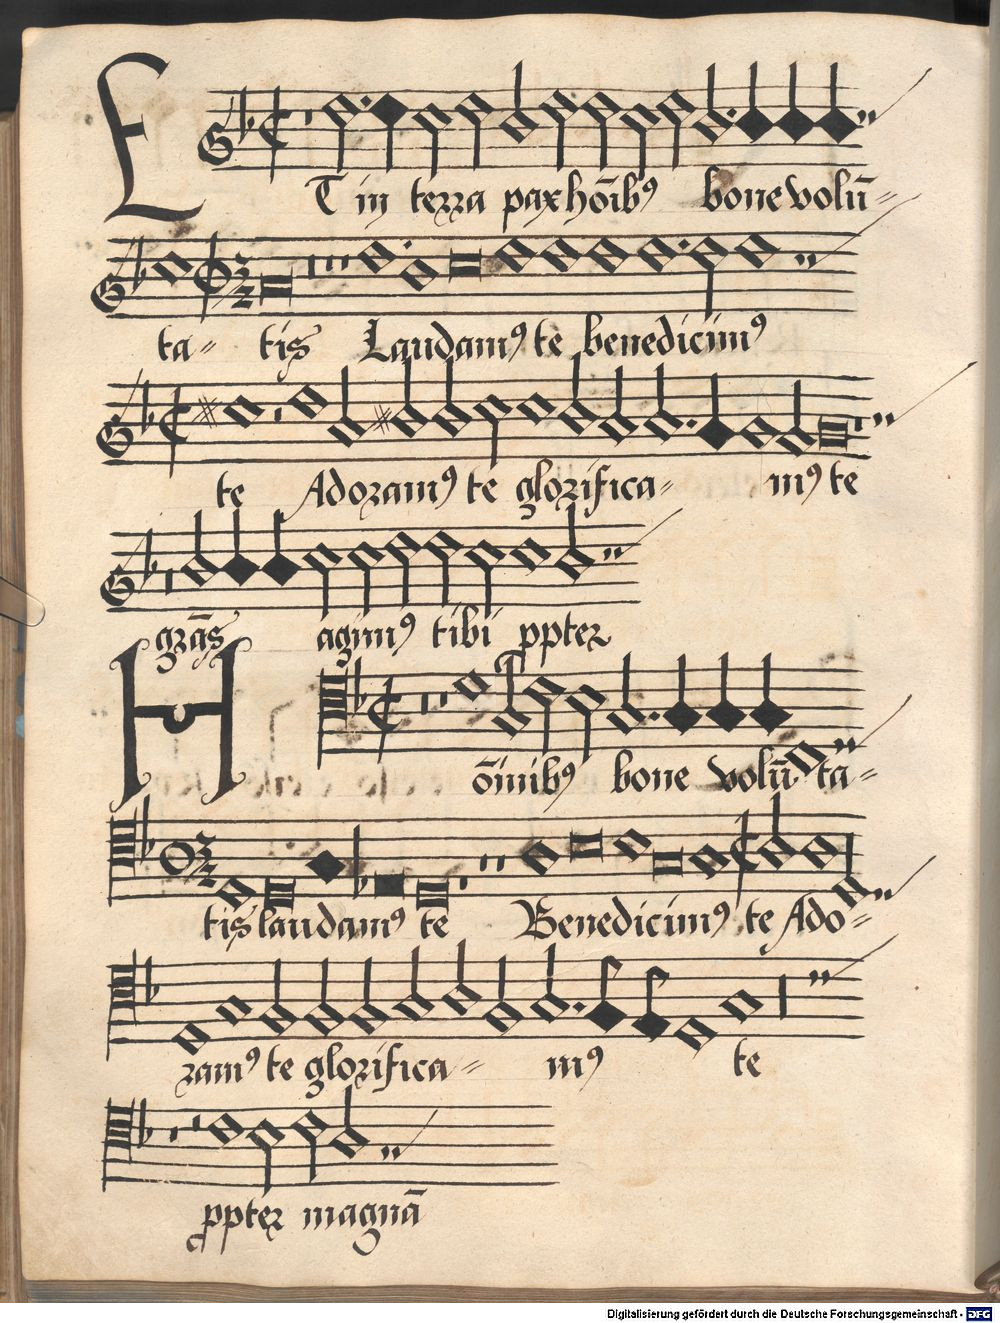 ET in terra pax hōibꝰ bone volū⸗
ta⸗ tis Laudamꝰ te benedicimꝰ
te Adoramꝰ te glorifica⸗ mꝰ te
grās agimꝰ tibi ꝓpter
Hōinibꝰ bone volū ta⸗
tis laudamꝰ te Benedicimꝰ te Ado⸗
ramꝰ te glorifica⸗ mꝰ te
ꝓpter magnā
Digitalisierung gefördert durch die Deutsche Forschungsgemeinschaft - DFG